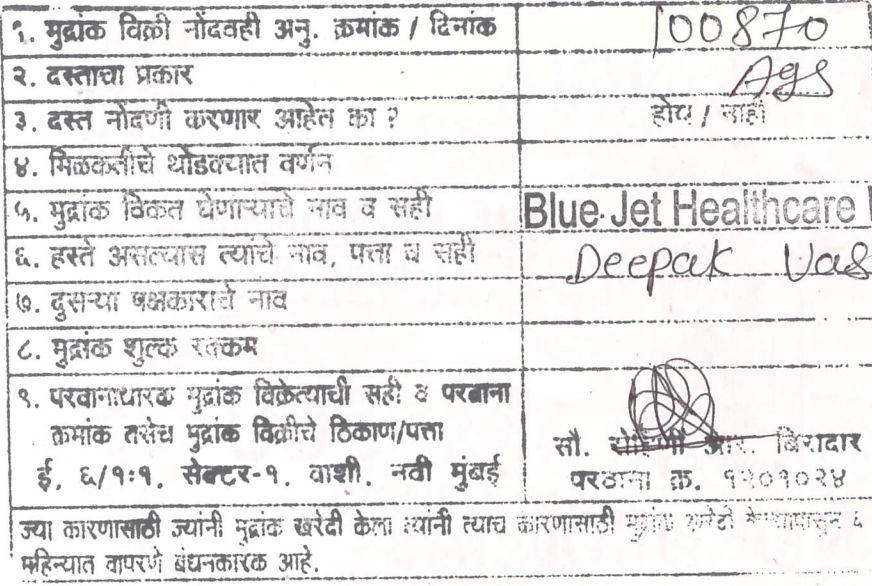 १. मुद्रांक विक्री नोंदवही अनु. क्रमांक / दिनांक 100870
२. दस्ताचा प्रकार Ags
३. दस्त नोंदणी करणार आहेत का ? होय / नाही
४. मिळकतीचे थोडक्यात वर्णन
५. मुद्रांक विकत घेणाऱ्याचे नाव व सही Blue Jet Healthcare
६. हस्ते असल्यास त्यांचे नाव, पत्ता व सही Deepak Vas
७. दुसऱ्या पक्षकाराचे नाव
८. मुद्रांक शुल्क रक्कम
९. परवानाधारक मुद्रांक विक्रेत्याची सही व परवाना
क्रमांक तसेच मुद्रांक विक्रीचे ठिकाण/पत्ता सौ. आर. बिरादार
ई, ६/१:१, सेक्टर-१, वाशी, नवी मुंबई परवाना क्र. १२०१०२४
ज्या कारणासाठी ज्यांनी मुद्रांक खरेदी केला त्यांनी त्याच कारणासाठी मुद्रांक खरेदी केल्यापासून ६
महिन्यात वापरणे बंधनकारक आहे.